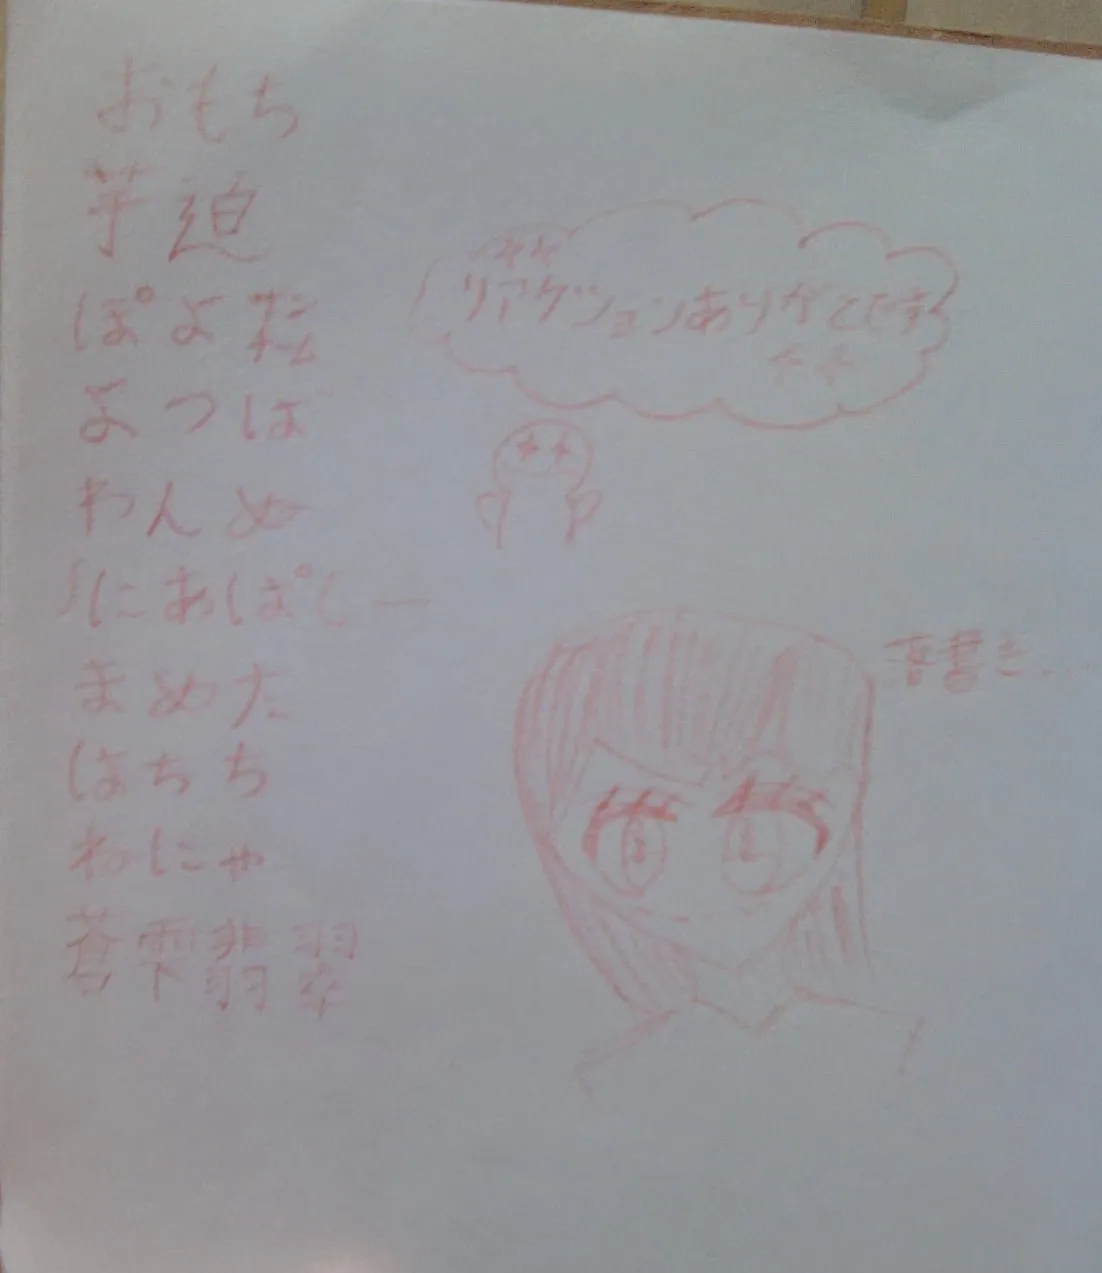 おもち
芋迫
ぽよサンチーム
よつば
わんめ
まめた
はちち
わにゃ
蒼雫翡翠
リアクションありがとです
落書き...